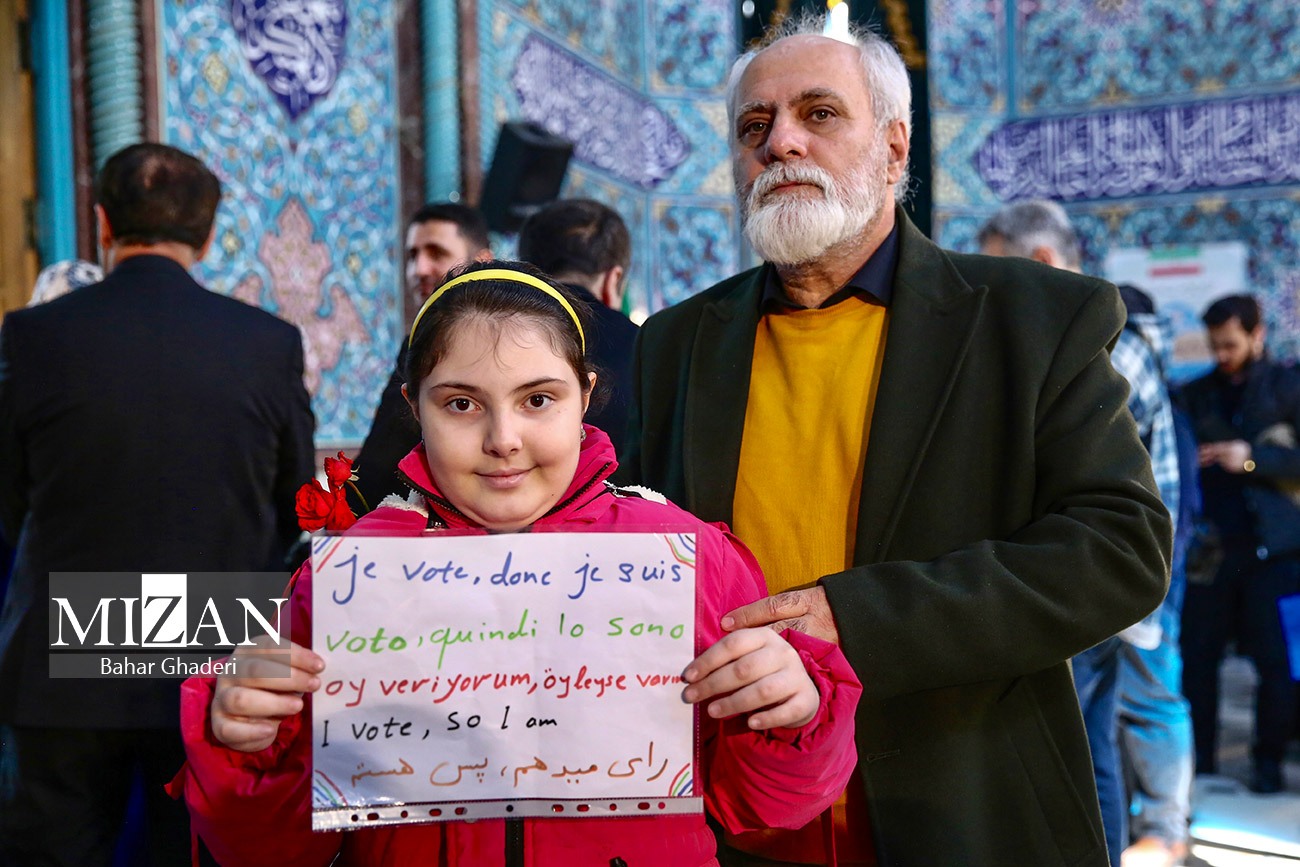 MIZAN
Bahar Ghaderi
je vote, donc je suis
voto, quindi Io sono
oy veriyorum, öyleyse varım
I vote, so I am
رای میدهم، پس هستم